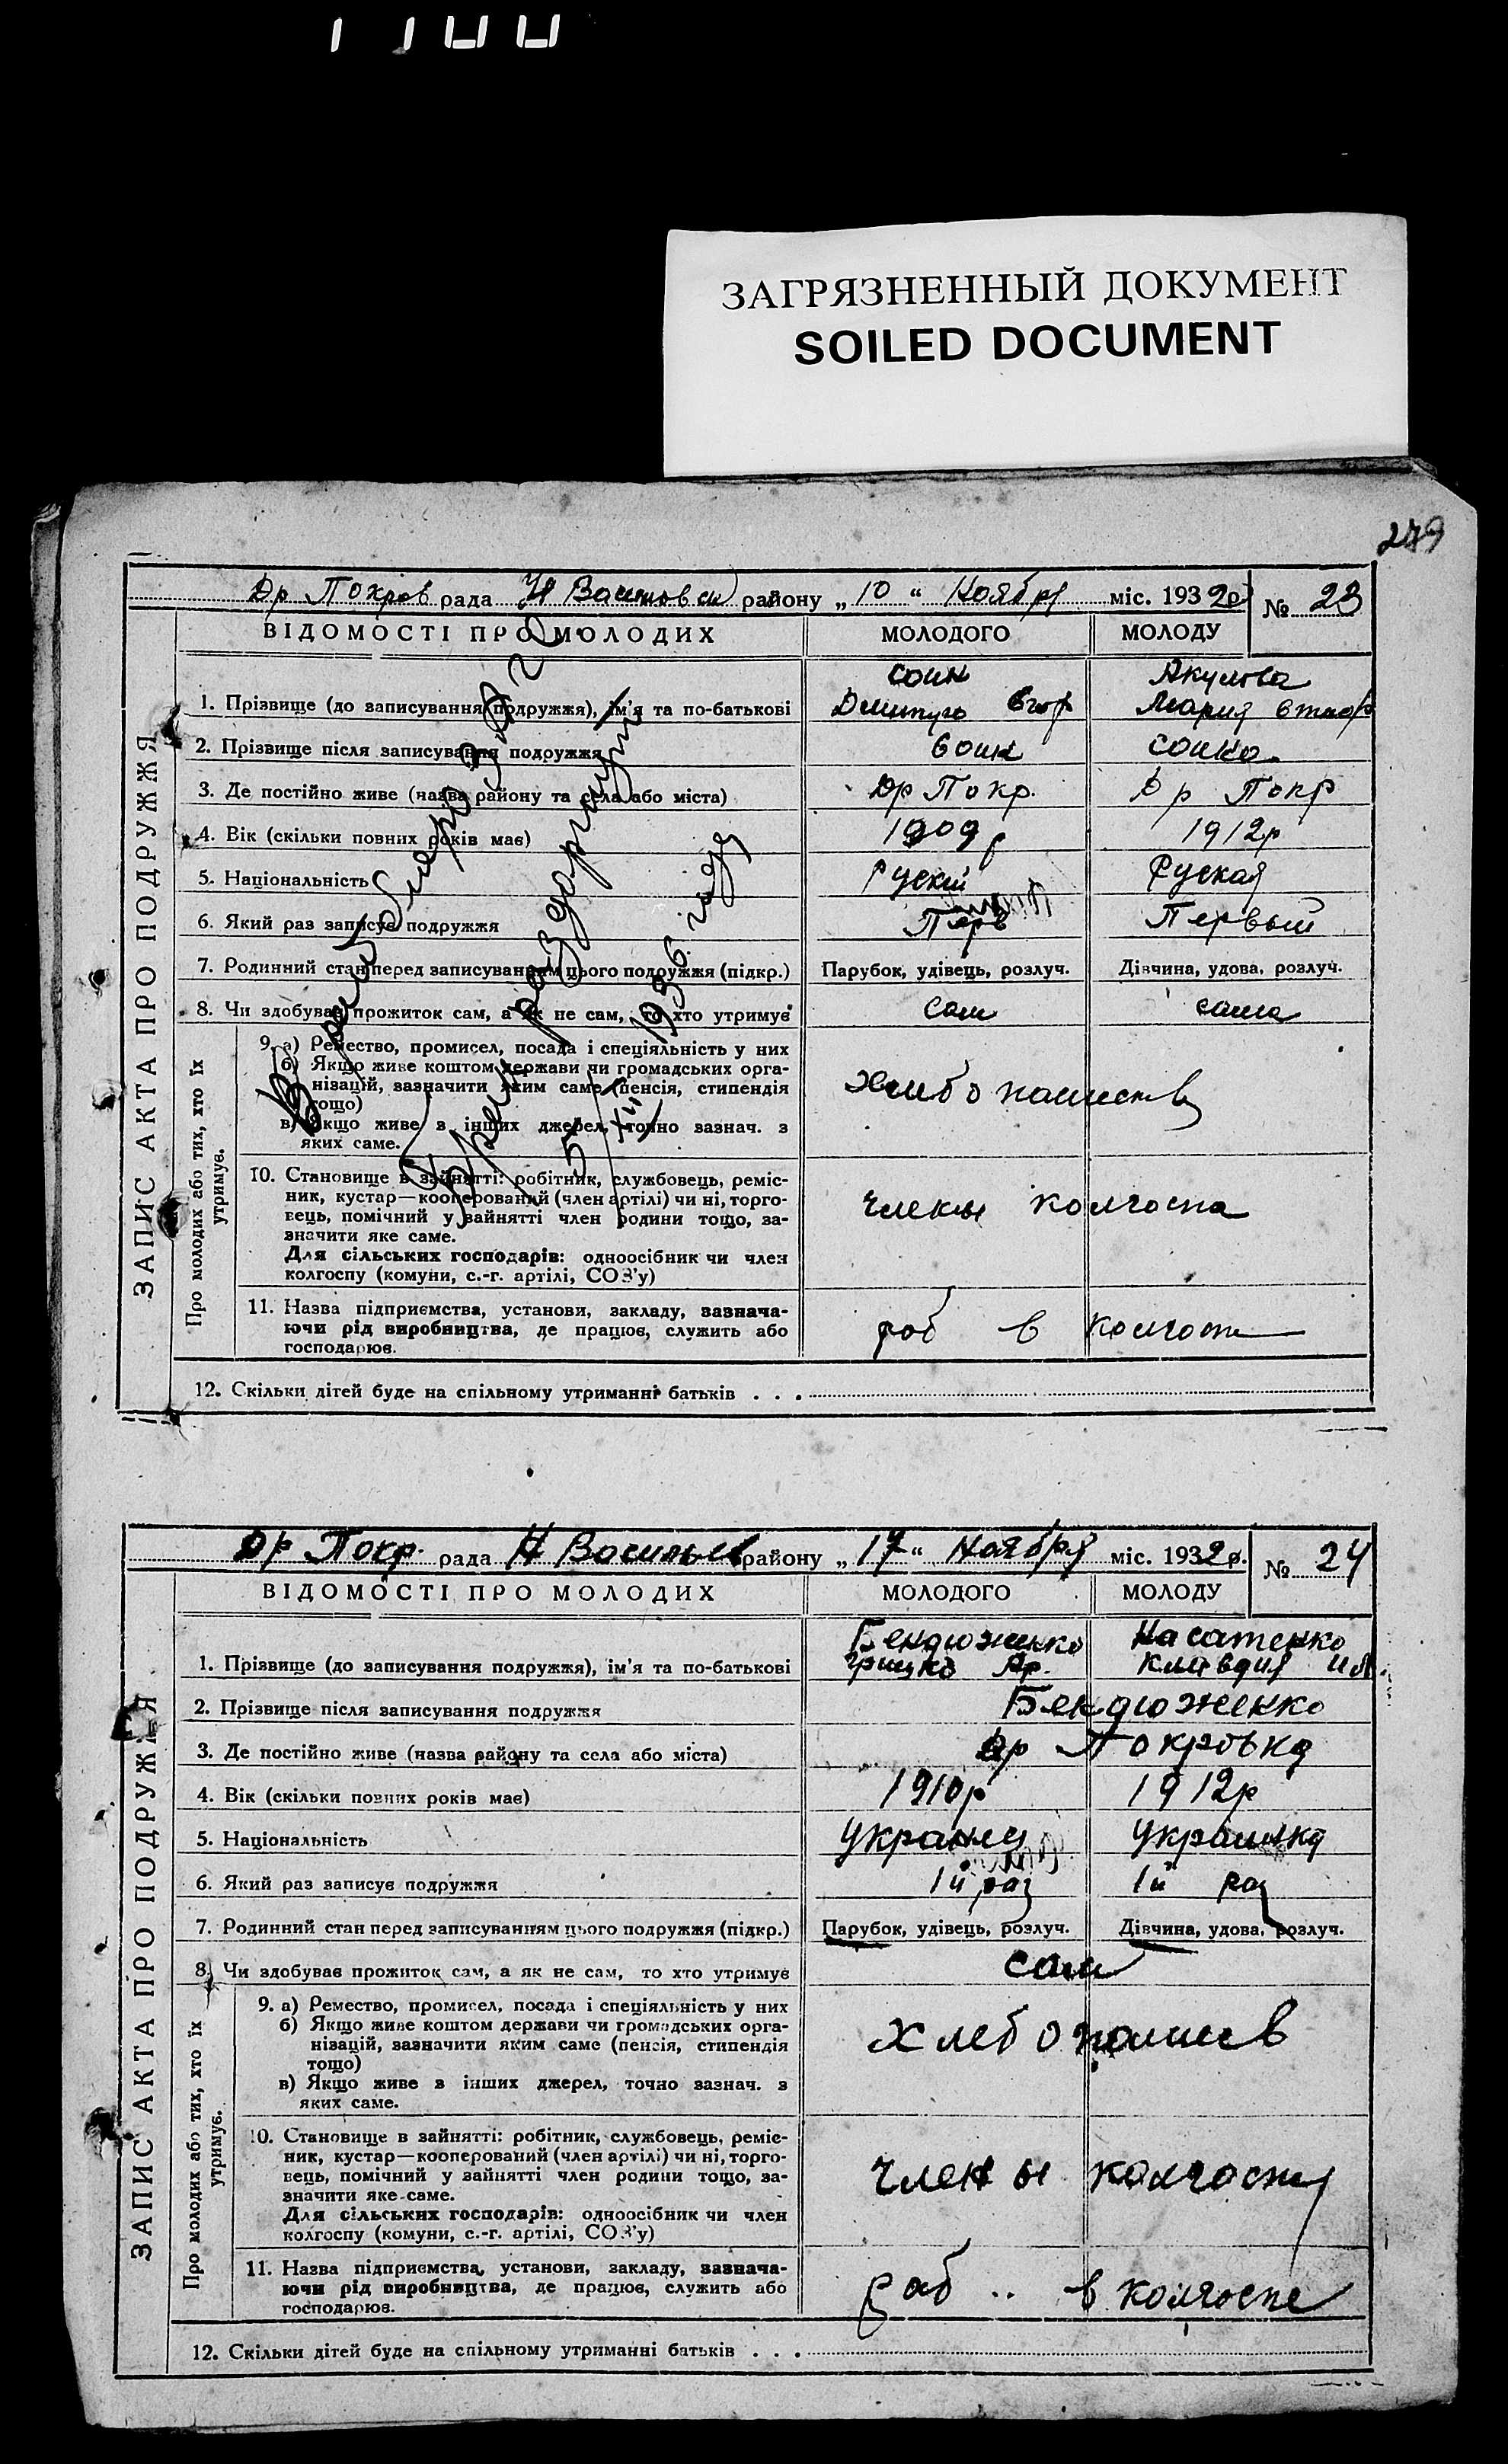 ЗАГРЯЗНЕННЫЙ ДОКУМЕНТ
SOILED DOCUMENT
279
Др Покров рада Н района „10“ Ноября міс. 1932р № 23
ВІДОМОСТІ ПРО МОЛОДИХ МОЛОДОГО МОЛОДУ
ЗАПИС АКТА ПРО ПОДРУЖЖЯ
Соин Акулова
1. Прізвище (до записування подружжя), ім'я та по-батькові Дмитро Егор Мария
2. Прізвище після записування подружжя Соин
3. Де постійно живе (назва району та села або міста) Др Покр. Др Покр
4. Вік (скільки повних років має) 1909р 1912р
5. Національність Руский Руская
6. Який раз записує подружжя Перв Первый
7. Родинний стан перед записуванням цього подружжя (підкр.) Парубок, удівець, розлуч. Дівчина, удова, розлуч.
8. Чи здобуває прожиток сам, а як не сам, то хто утримує сам сама
Про молодих або тих, хто їх утримує.
9. а) Ремество, промисел, посада і спеціяльність у них
б) Якщо живе коштом держави чи громадських орга-
нізацій, зазначити яким саме (пенсія, стипендія
тощо)
в) Якщо живе з інших джерел, точно зазнач. з
яких саме.
10. Становище в зайнятті: робітник, службовець, реміс-
ник, кустар—кооперований (член артілі) чи ні, торго-
вець, помічний у зайнятті член родини тощо, за-
значити яке саме.
члены колгоспа
Для сільських господарів: одноосібник чи член
колгоспу (комуни, с.-г. артілі, СОЗ'у)
11. Назва підприємства, установи, закладу, зазнача-
ючи рід виробництва, де працює, служить або
господарює.
роб в колгосп
12. Скільки дітей буде на спільному утриманні батьків . . .
Брак
1936 году
Др Покр. рада Н Васильев району „17“ Ноября міс. 1932р. № 24
ВІДОМОСТІ ПРО МОЛОДИХ МОЛОДОГО МОЛОДУ
ЗАПИС АКТА ПРО ПОДРУЖЖЯ
Бендюженко Насатенко
1. Прізвище (до записування подружжя), ім'я та по-батькові Грицко Ар. Клавдия Ил
2. Прізвище після записування подружжя Бендюженко
3. Де постійно живе (назва району та села або міста) Др Покровка
4. Вік (скільки повних років має) 1910р 1912р
5. Національність Украинец Украинка
6. Який раз записує подружжя 1й раз 1й раз
7. Родинний стан перед записуванням цього подружжя (підкр.) Парубок, удівець, розлуч. Дівчина, удова, розлуч.
8. Чи здобуває прожиток сам, а як не сам, то хто утримує сам
Про молодих або тих, хто їх утримує.
9. а) Ремество, промисел, посада і спеціяльність у них
б) Якщо живе коштом держави чи громадських орга-
нізацій, зазначити яким саме (пенсія, стипендія
тощо)
в) Якщо живе з інших джерел, точно зазнач. з
яких саме.
хлебопашев
10. Становище в зайнятті: робітник, службовець, реміс-
ник, кустар—кооперований (член артілі) чи ні, торго-
вець, помічний у зайнятті член родини тощо, за-
значити яке саме.
члены колгоспу
Для сільських господарів: одноосібник чи член
колгоспу (комуни, с.-г. артілі, СОЗ'у)
11. Назва підприємства, установи, закладу, зазнача-
ючи рід виробництва, де працює, служить або
господарює.
раб .. в колгоспе
12. Скільки дітей буде на спільному утриманні батьків . . .